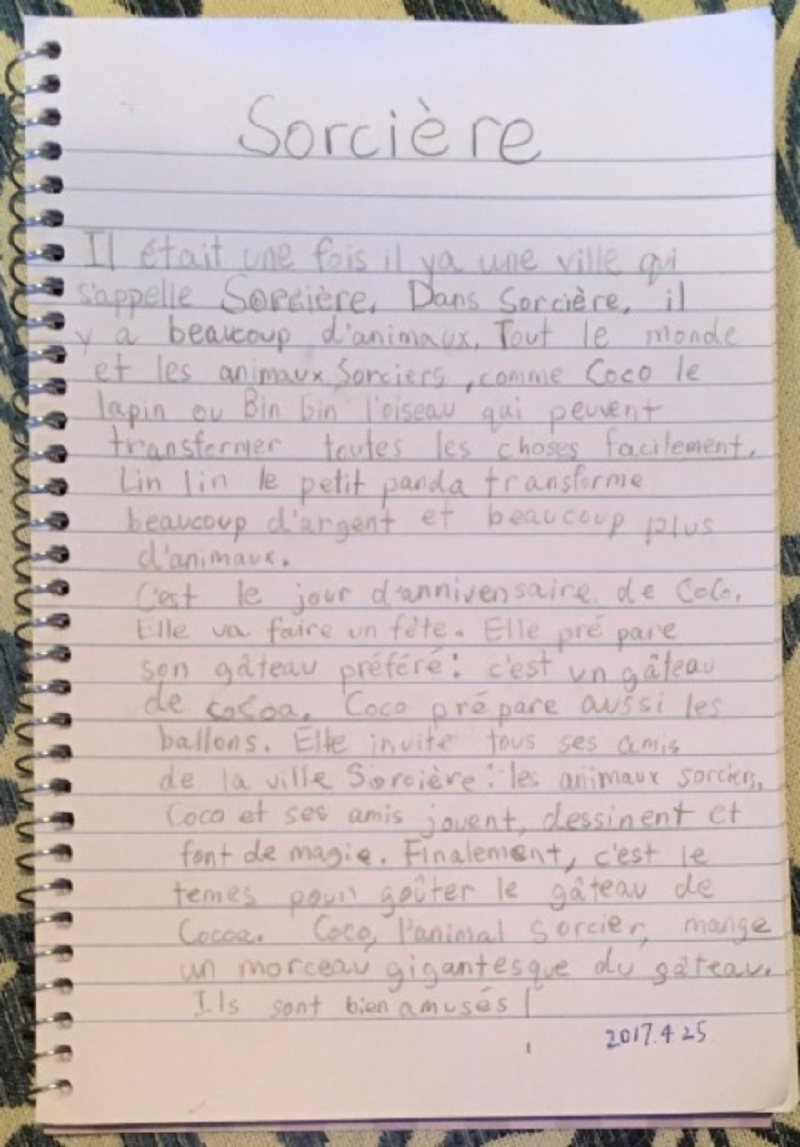 Sorcière
Il était une fois il ya une ville qui
s'appelle Sorcière. Dans Sorcière, il
y a beaucoup d'animaux. Tout le monde
et les animaux Sorciers, comme Coco le
lapin ou Bin bin l'oiseau qui peuvent
transformer toutes les choses facilement.
Lin lin le petit panda transforme
beaucoup d'argent et beaucoup plus
d'animaux.
C'est le jour d'anniversaire de Coco.
Elle va faire un fête. Elle prépare
son gâteau préféré: c'est un gâteau
de cocoa. Coco prépare aussi les
ballons. Elle invite tous ses amis
de la ville Sorcière: les animaux sorciers.
Coco et ses amis jouent, dessinent et
font de magie. Finalement, c'est le
temes pour goûter le gâteau de
Cocoa. Coco, l'animal sorcier, mange
un morceau gigantesque du gâteau.
Ils sont bien amusés!
2017.4.25